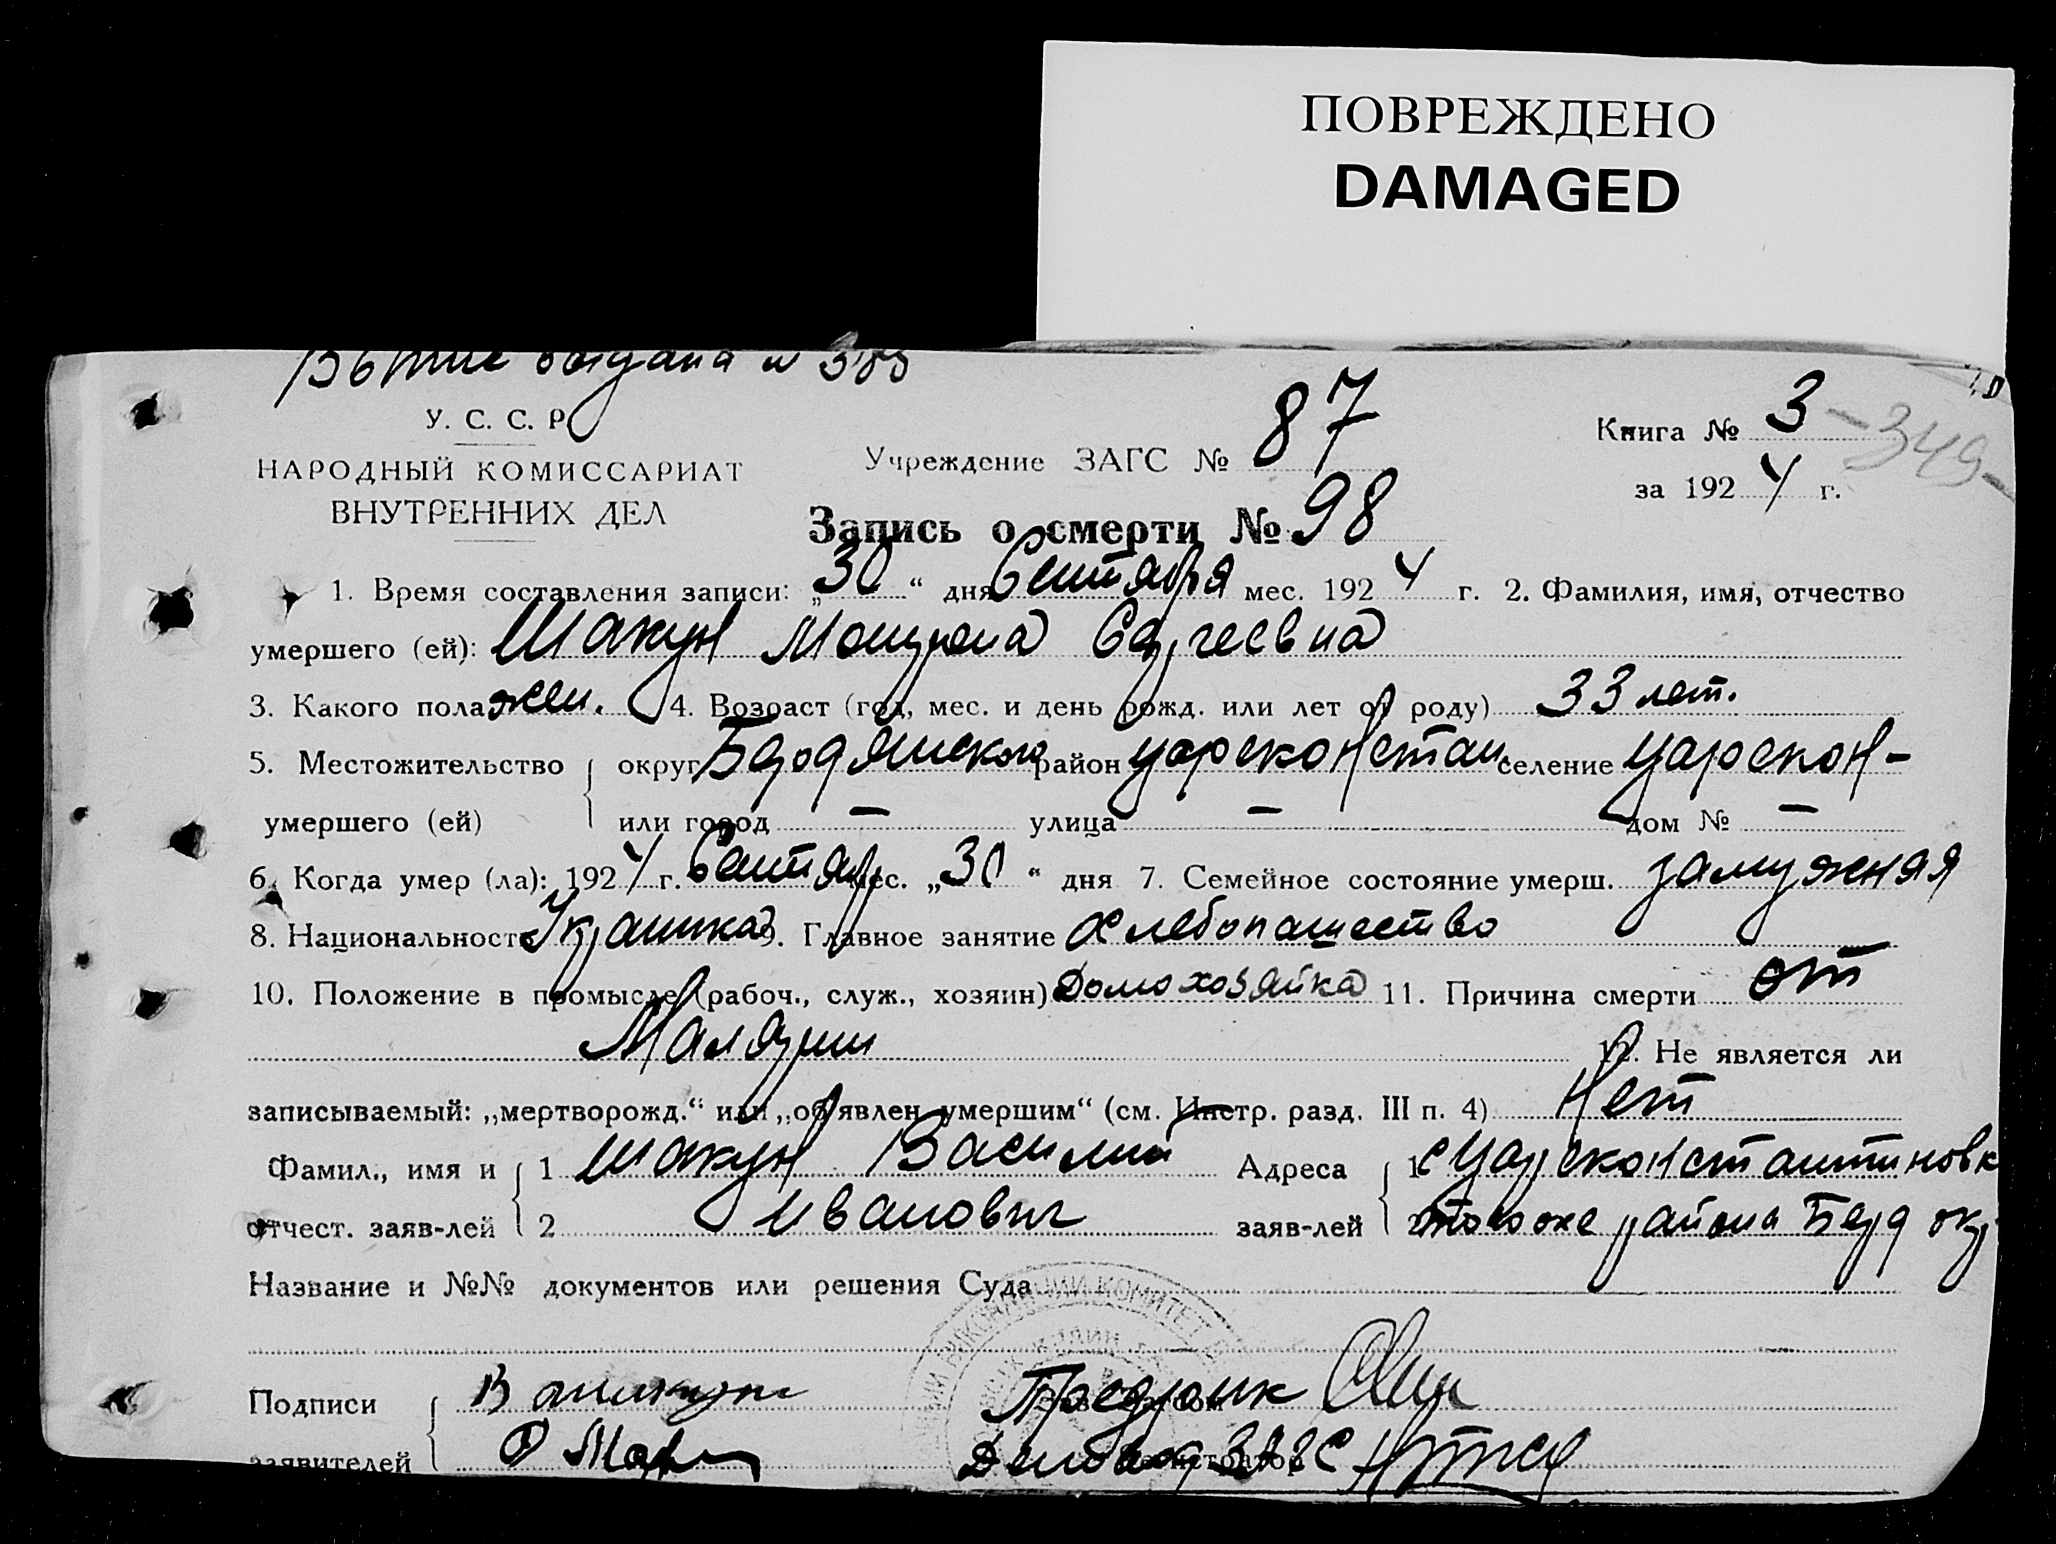 ПОВРЕЖДЕНО
DAMAGED
выдана № 385
У. С. С. Р.
НАРОДНЫЙ КОМИССАРИАТ
ВНУТРЕННИХ ДЕЛ
Учреждение ЗАГС № 87
Книга № 3 -349-
за 1924 г.
Запись о смерти № 98
1. Время составления записи: „30“ дня Сентября мес. 1924 г. 2. Фамилия, имя, отчество
умершего (ей): Шакун Сергеевна
3. Какого пола жен. 4. Возраст (год, мес. и день рожд. или лет от роду) 33 лет.
5. Местожительство округ Бердянского район Царсконстан. селение Царскон-
умершего (ей) или город — улица — дом № —
6. Когда умер (ла): 1924 г. Сентяб. мес. „30“ дня 7. Семейное состояние умерш. замужняя
8. Национальность Украинка 9. Главное занятие Хлебопашество
10. Положение в промысле (рабоч., служ., хозяин) Домохозяйка 11. Причина смерти от
Малярии 12. Не является ли
записываемый: „мертворожд.“ или „об'явлен умершим“ (см. Инстр. разд. III п. 4) Нет
Фамил., имя и 1 Шакун Василий Адреса 1 с Царсконстантиновк
отчест. заяв-лей 2 Иванович заяв-лей 2 того же района Берд окр
Название и №№ документов или решения Суда
Подписи В
заявителей